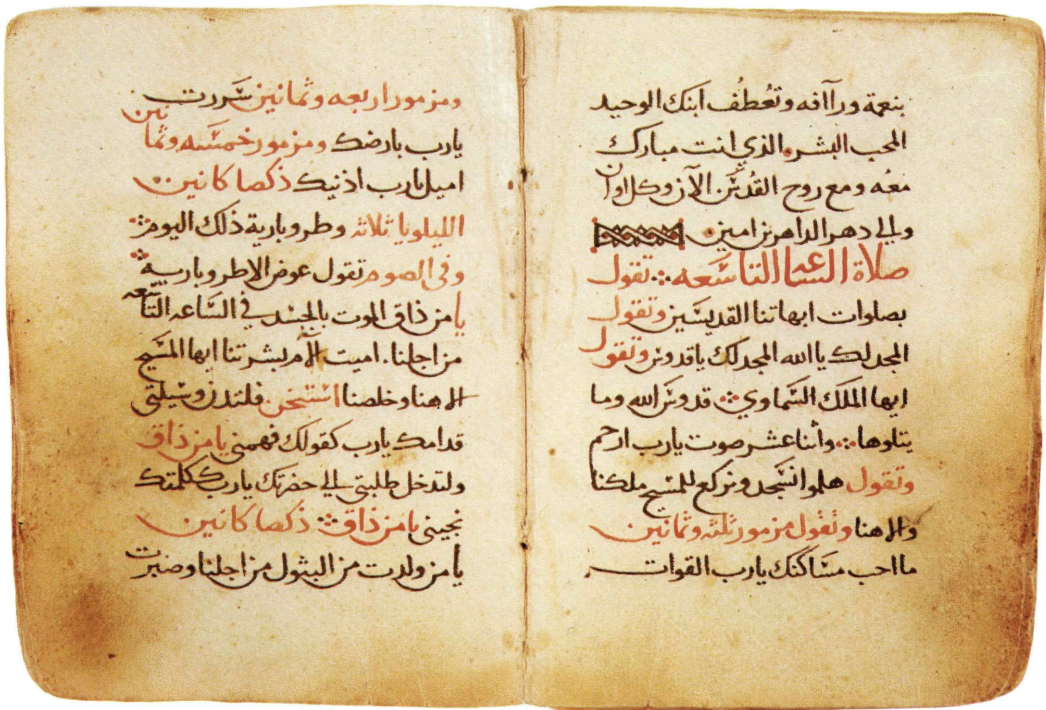 بنعمة وراآفه وتعطف ابنك الوحيد
المحب البشر الذي انت مبارك
معه ومع روح القدس الآن وكل اوان
والي دهر الداهرين امين
صلاة الساعه التاسعه تقول
بصلوات ابهاتنا القديسين وتقول
المجد لك يا الله المجد لك ياقدوس وتقول
ايها الملك السماوي قدوس الله وما
يتلوها واثنا عشر صوت يارب ارحم
وتقول هلموا نسجد ونركع للمسيح ملكنا
والاهنا وتقول مزمور ثلثه وثمانين
ما احب مساكنك يارب القوات
ومزمور اربعه وثمانين سررت
يارب بارضك ومزمور خمسه وثمانين
اميل يارب اذنيك ذكصا كانين
الليلويا ثلاثه وطروبارية ذلك اليوم
وفي الصوم تقول عوض الاطروبارية
يا من ذاق الموت بالجسد في الساعه التاسعه
من اجلنا. اميت الام بشرتنا ايها المسيح
الاهنا وخلصنا استيخن فلتدن وسيلتي
قدامك يارب كقولك فهمني يا من ذاق
ولتدخل طلبتي الي حضرتك يارب ككلمتك
نجيني يا من ذاق ذكصا كانين
يا من ولدت من البثول من اجلنا وصبرت